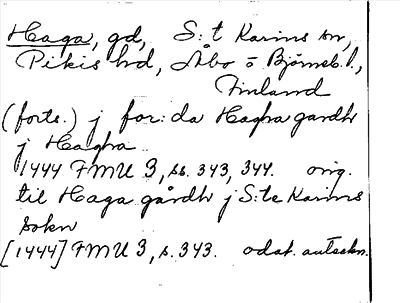 Haga, gd, S:t Karins sn,
Pikis hd, Åbo o Björneb. l.,
Finland
(forts.) j for:da Haghra gardh
j Haghra
1444 FMU 3, ss. 343, 344. orig.
til Haga gårdh j S:te Karins
sokn
[1444] FMU 3, s. 343. odat. anteckn.